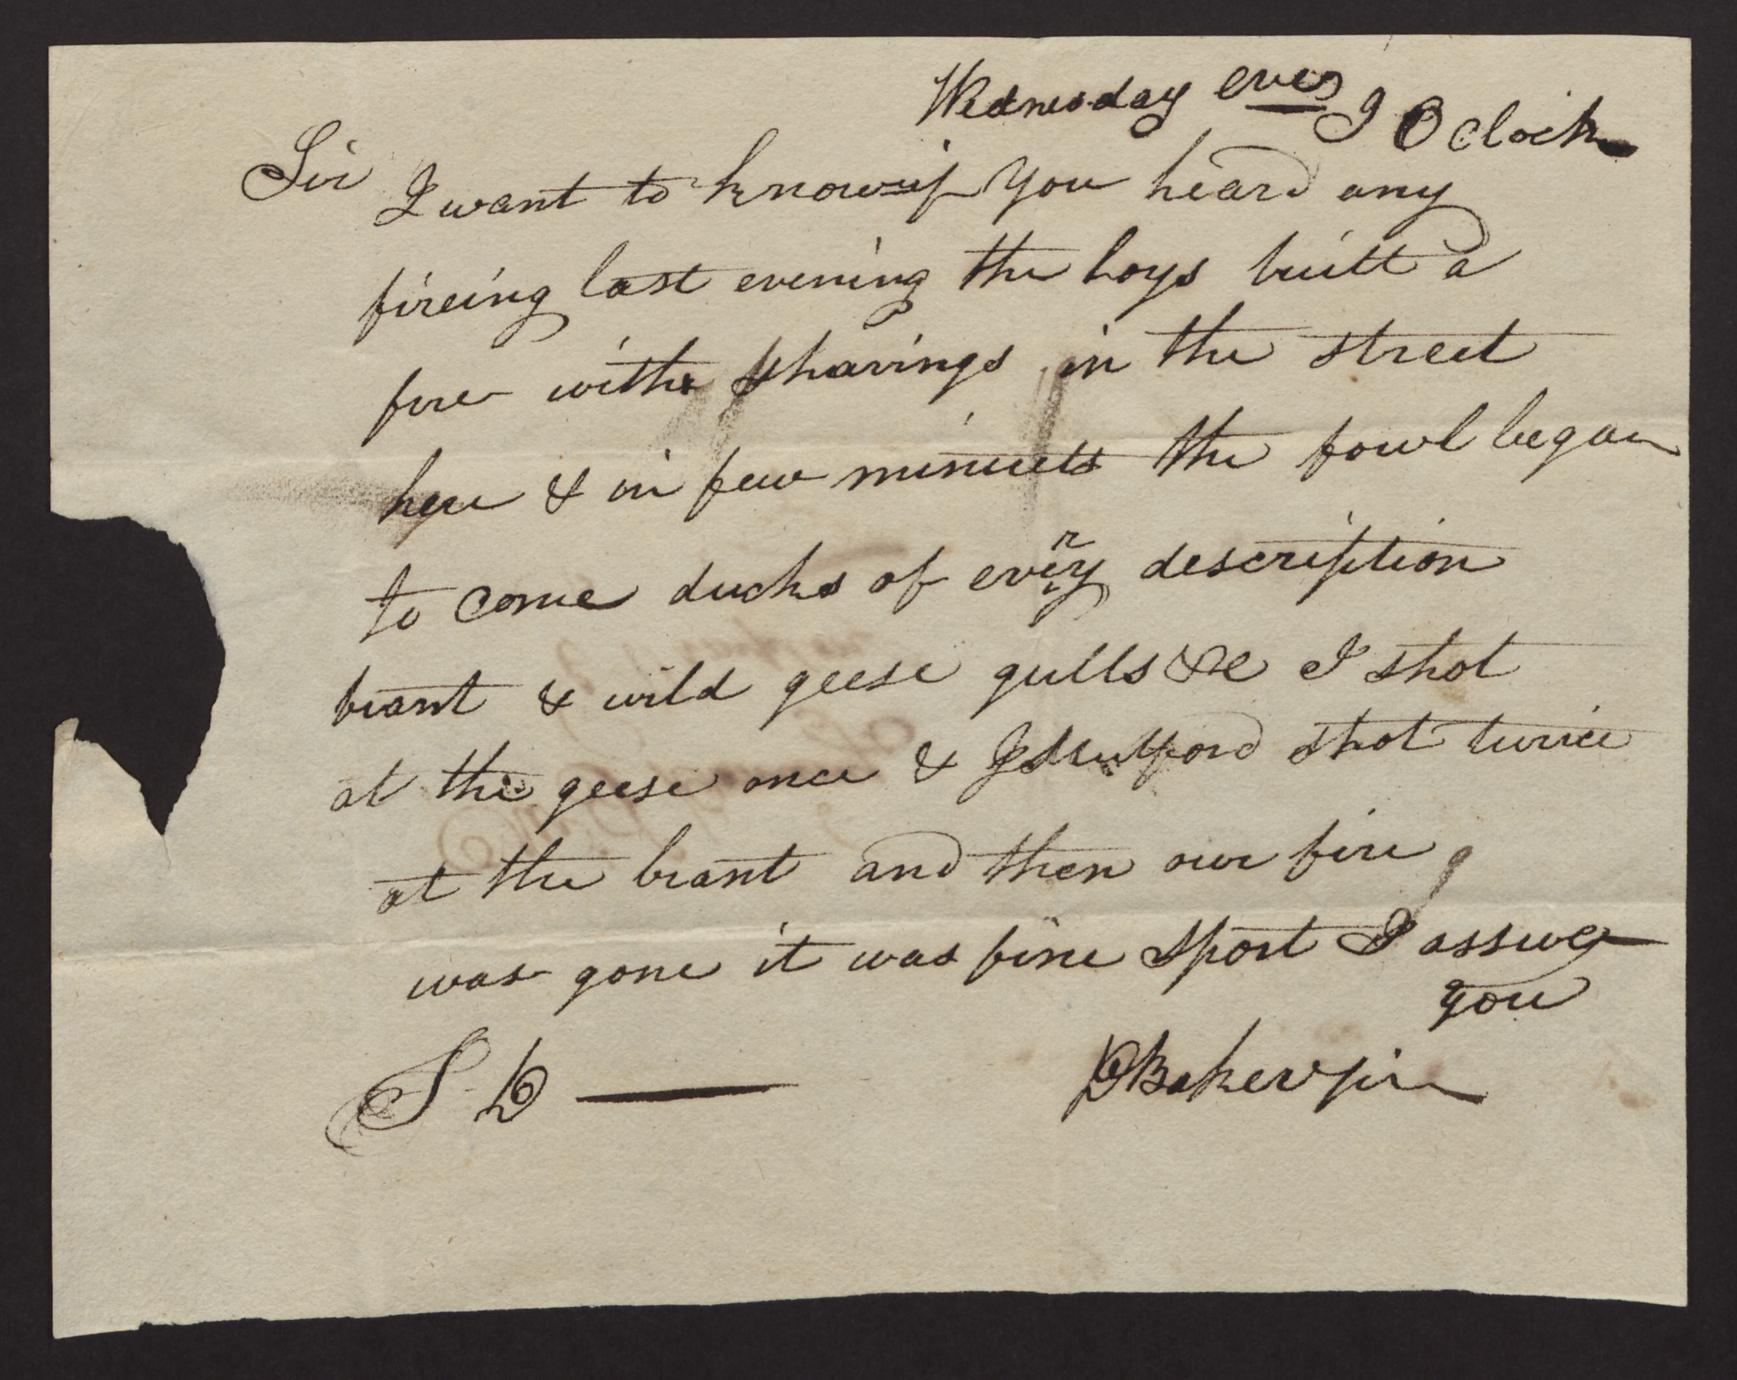 Wednesday eveg 9 O Clock
Sir
I want to know if you heard any
fireing last evening the boys built a
fire with shavings in the street
here & in few minuets the fowl began
to come ducks of every description
brant & wild geese gulls &c I shot
at the geese once & J Mulford shot twice
at the brant and then our fire
was gone it was fine sport I assure
you
S. D
D Baker jr